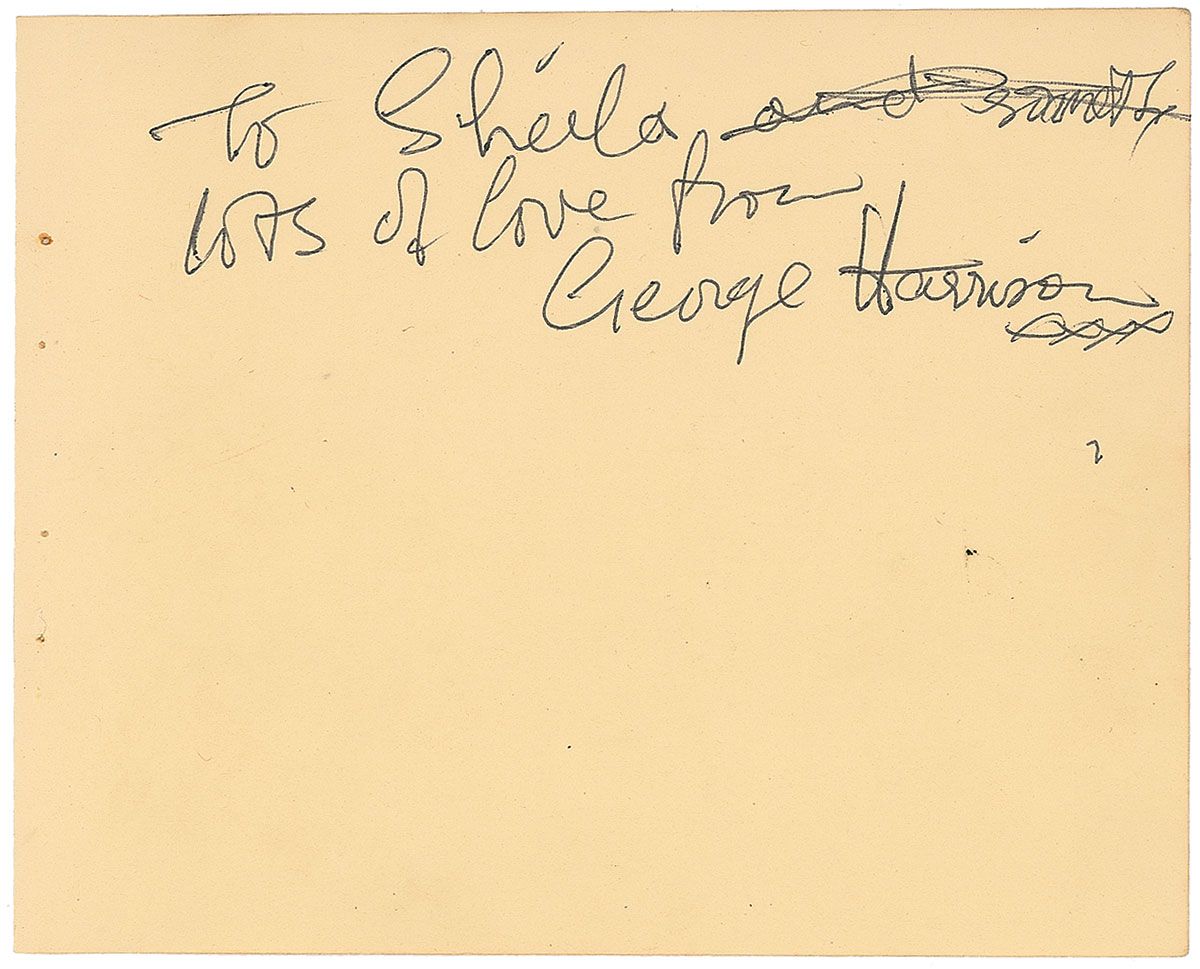 To Sheila and
lots of love from
George Harrison
xxx